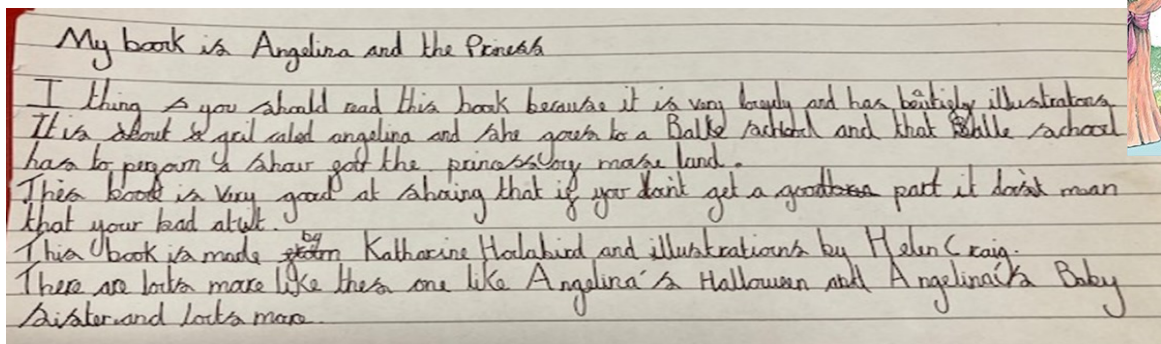 My book is Angelina and the Priness
I thing you should read this book because it is very lovely and has illustrations.
It is about a gril caled angelina and she goues to a Balle school and that Balle school
has to a show the princess of mouse land.
This book is very good at shoing that if you don't get a good part it dosn't mean
that your bad at it.
This book is made by Katharine Holabird and illustrations by Helen Craig.
There are lots more like thes one like Angelina's Halloween and Angelina's Baby
sister and lots more.